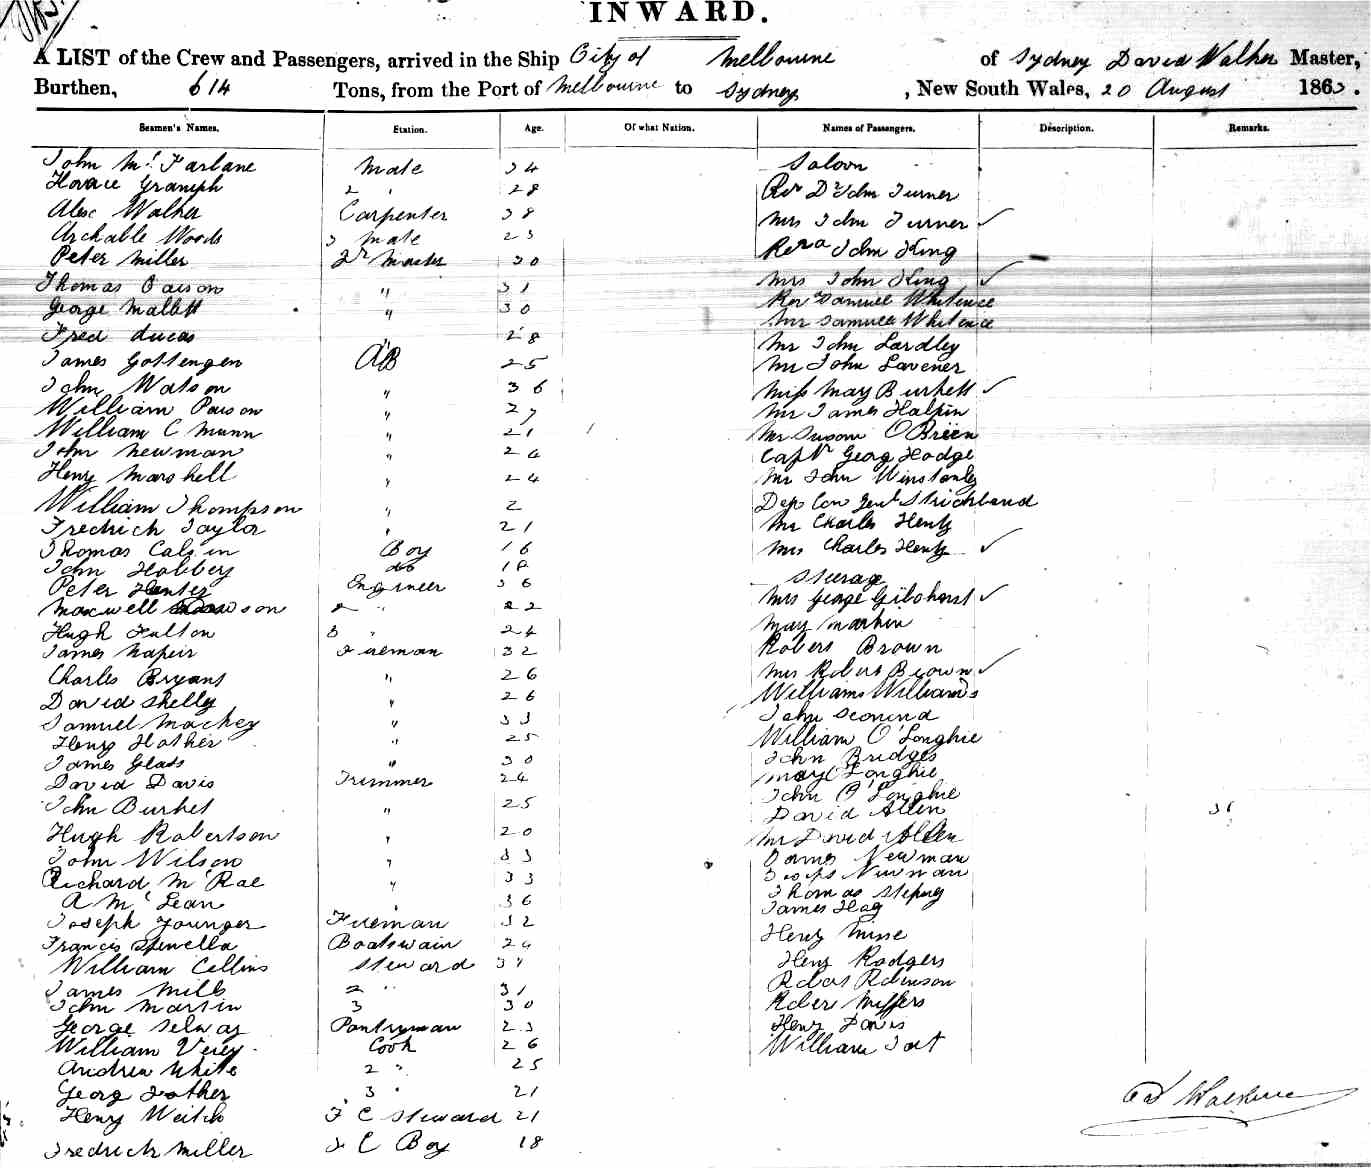 INWARD.
A LIST of the Crew and Passengers, arrived in the Ship City of Melbourne of Sydney David Walker Master,
Burthen, 614 Tons, from the Port of Melbourne to Sydney, New South Wales, 20 August 186
Seamen's Names. Station. Age. Of what Nation. Names of Passengers. Description. Remarks.
John Mc Farlane Mate 34 Saloon
Horace 2 " 28 Revr Dr John Turner
Alex Walker Carpenter 38 Mrs John Turner ✓
Archable Woods 3 mate 23 John King
Peter Miller 30 Mrs John King ✓
Thomas " 31 Rev Samuel
George Mallett " 30 Samuel
Fred Lucas " 28 Mr John Lardley
James Gottengen AB 25 Mr John Lavener
John Watson " 36 Miss May Burkett ✓
William Paison " 27 Mr James Halpin
William C Munn " 21 Susan O Brien
John Newman " 24 Captn Georg Hodge
Henry Marshell " 24 Mr John Winstanly
William Thompson " 2 Dep Com Genl Strickland
Fredrich Taylor " 21 Mr Charles Hentz
Thomas Boy 16 Mrs Charles Hentz ✓
John Hobbery do 18 Steerage
Peter Engineer 36 Mrs George ✓
Maxwell 2 " 22 May
Hugh Fulton 3 " 24 Robert Brown
James Napeir Fireman 32 Mrs Robert Brown ✓
Charles Bryans " 26 Williams Williams
David Shelly " 26 John
Samuel Mackey " 33 William O'Longhie
Henry Hather " 25 John Bridges
James Glass " 30 Longhie
David Davis Trimmer 24 John O'Longhie
John Burket " 25 David Allen
Hugh Robertson " 20 David Allen
John Wilson " 33 James Newman
Richard Mc Rae " 33 Newman
A Mc Lean " 36 Thomas
Joseph Younger Fireman 32 James Hag
Francis Spinella Boatswain 24 Henry
William Collins Steward 37 Henry Rodgers
James Mills 2 " 31 Robert Robinson
John Martin 3 30
George Selway Pantryman 23 Henry Davis
William Verey Cook 26 William Tait
Andrew White 2 " 25
Georg 3 " 21
Henry Weitch F C Steward 21
Fredrich Miller F C Boy 18